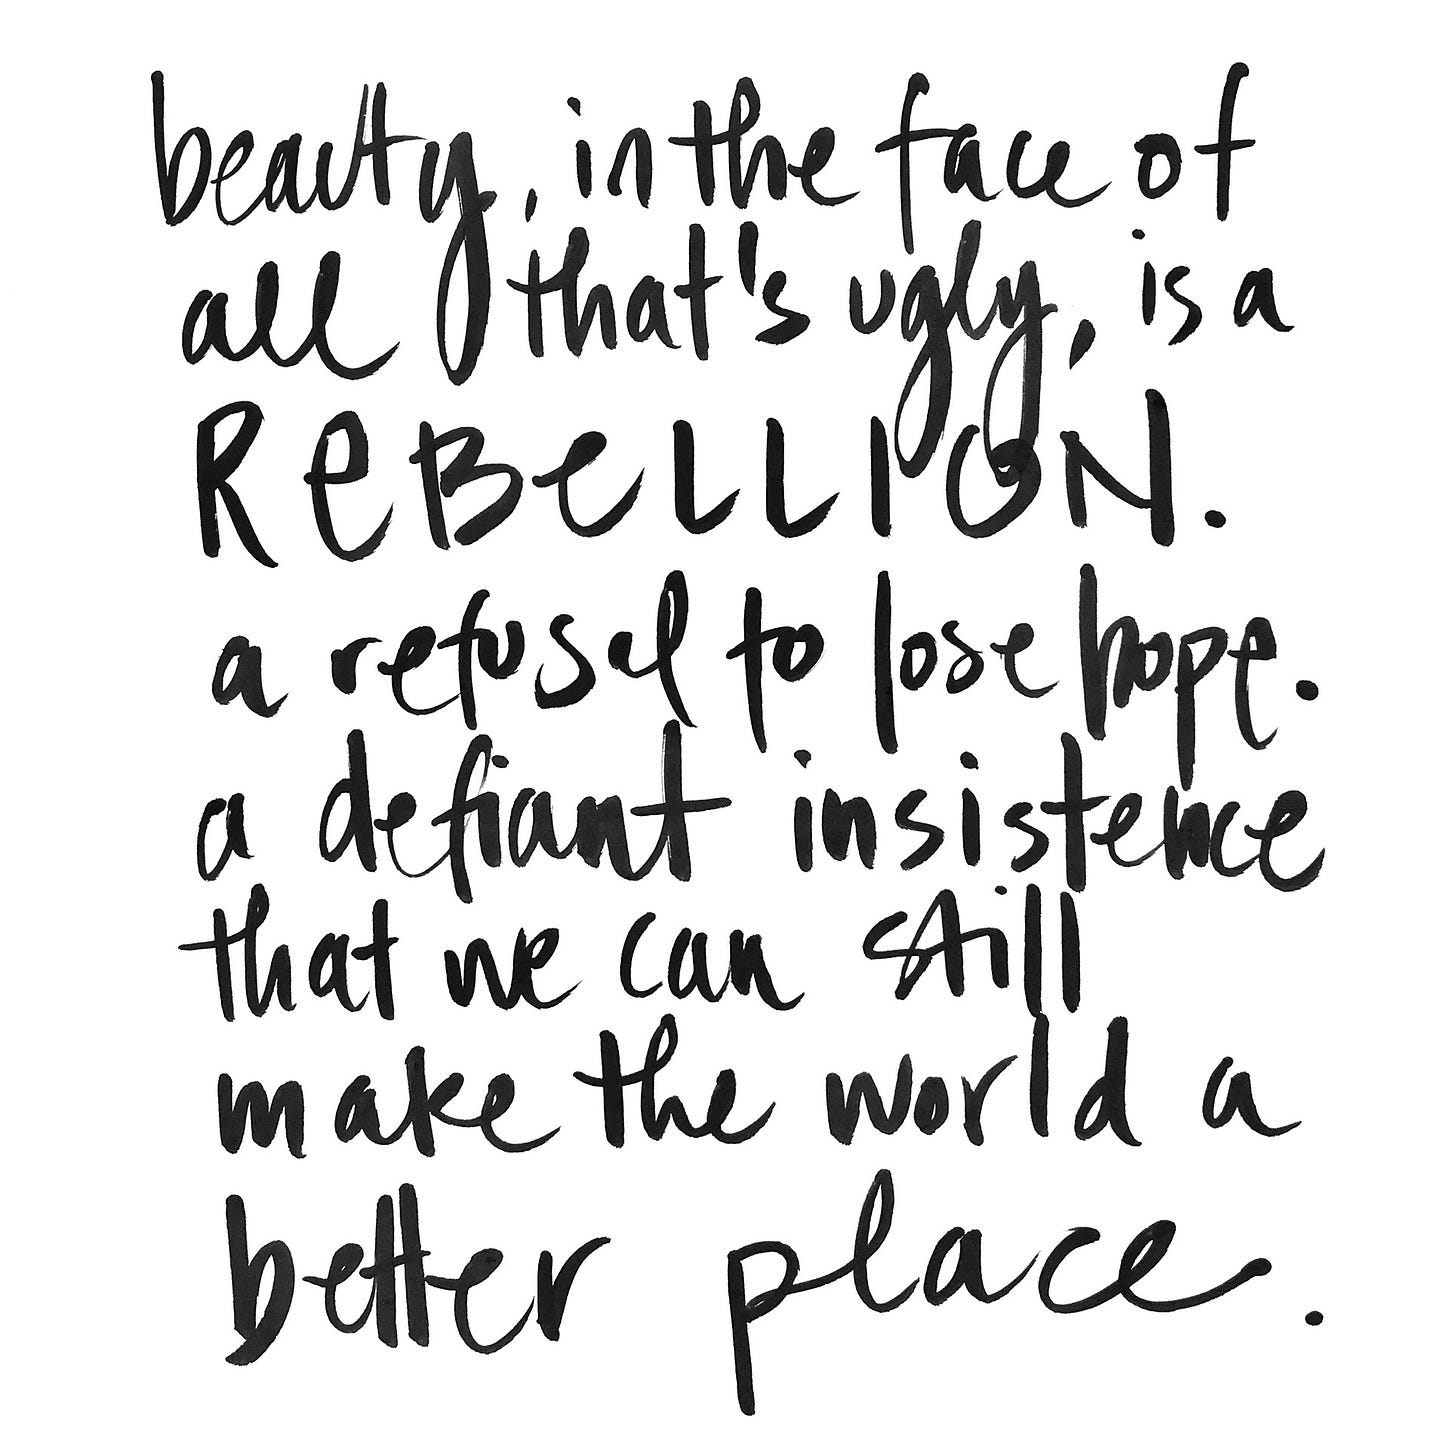 beauty, in the face of
all that's ugly, is a
ReBeLLION.
a refusal to lose hope.
a defiant insistence
that we can still
make the world a
better place.